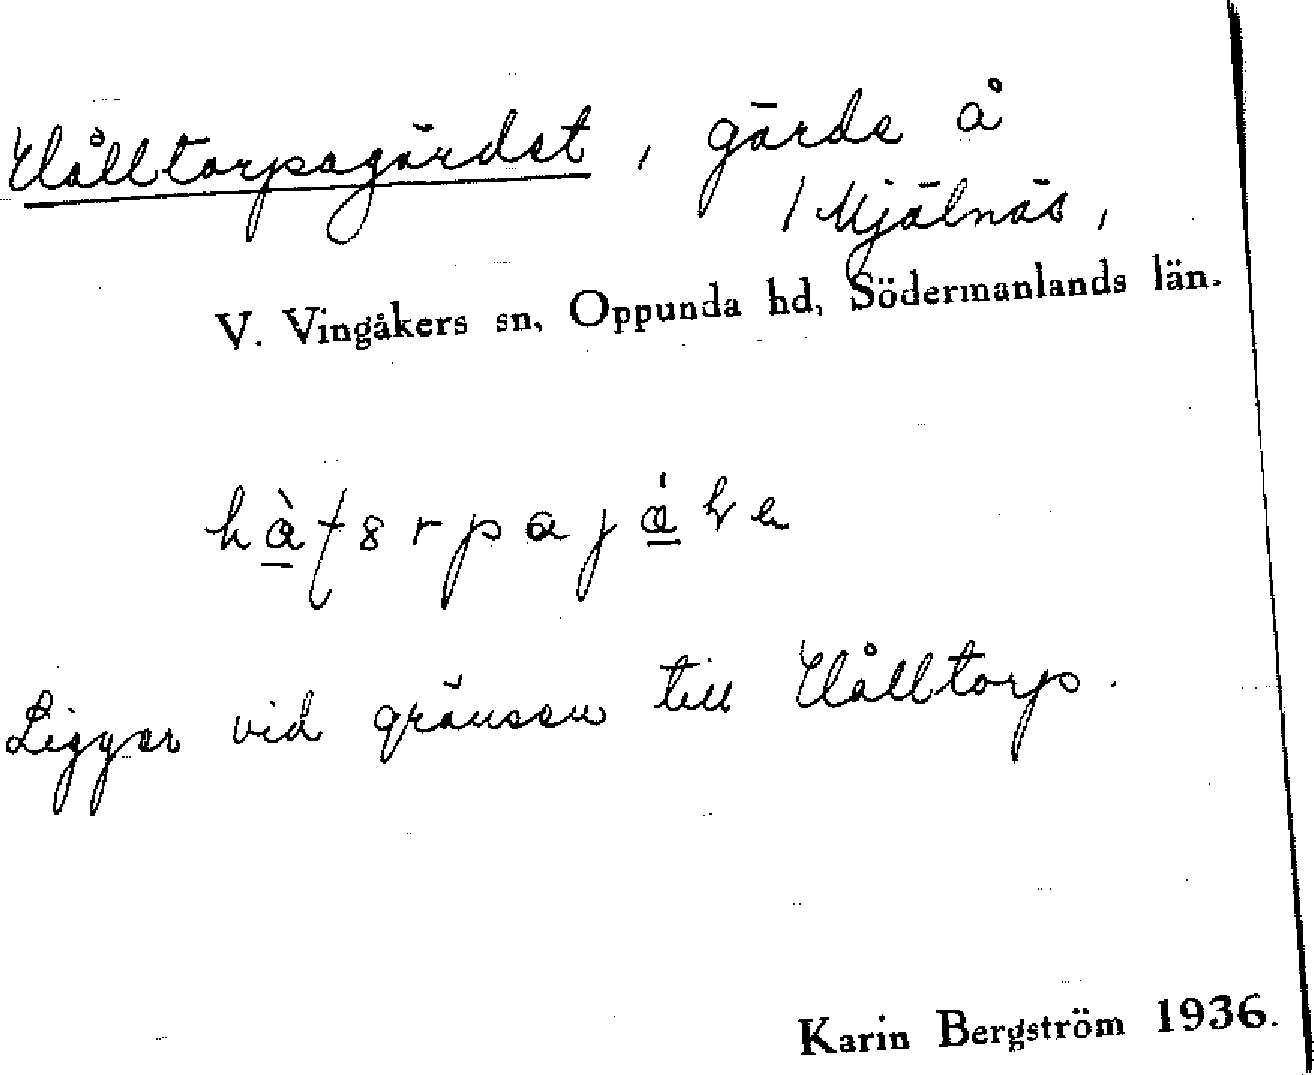 Hålltorpagärdet, gärde å
1 Mjälnäs,
V. Vingåkers sn, Oppunda hd, Södermanlands län.
Ligger vid gränsen till Hålltorp.
Karin Bergström 1936.